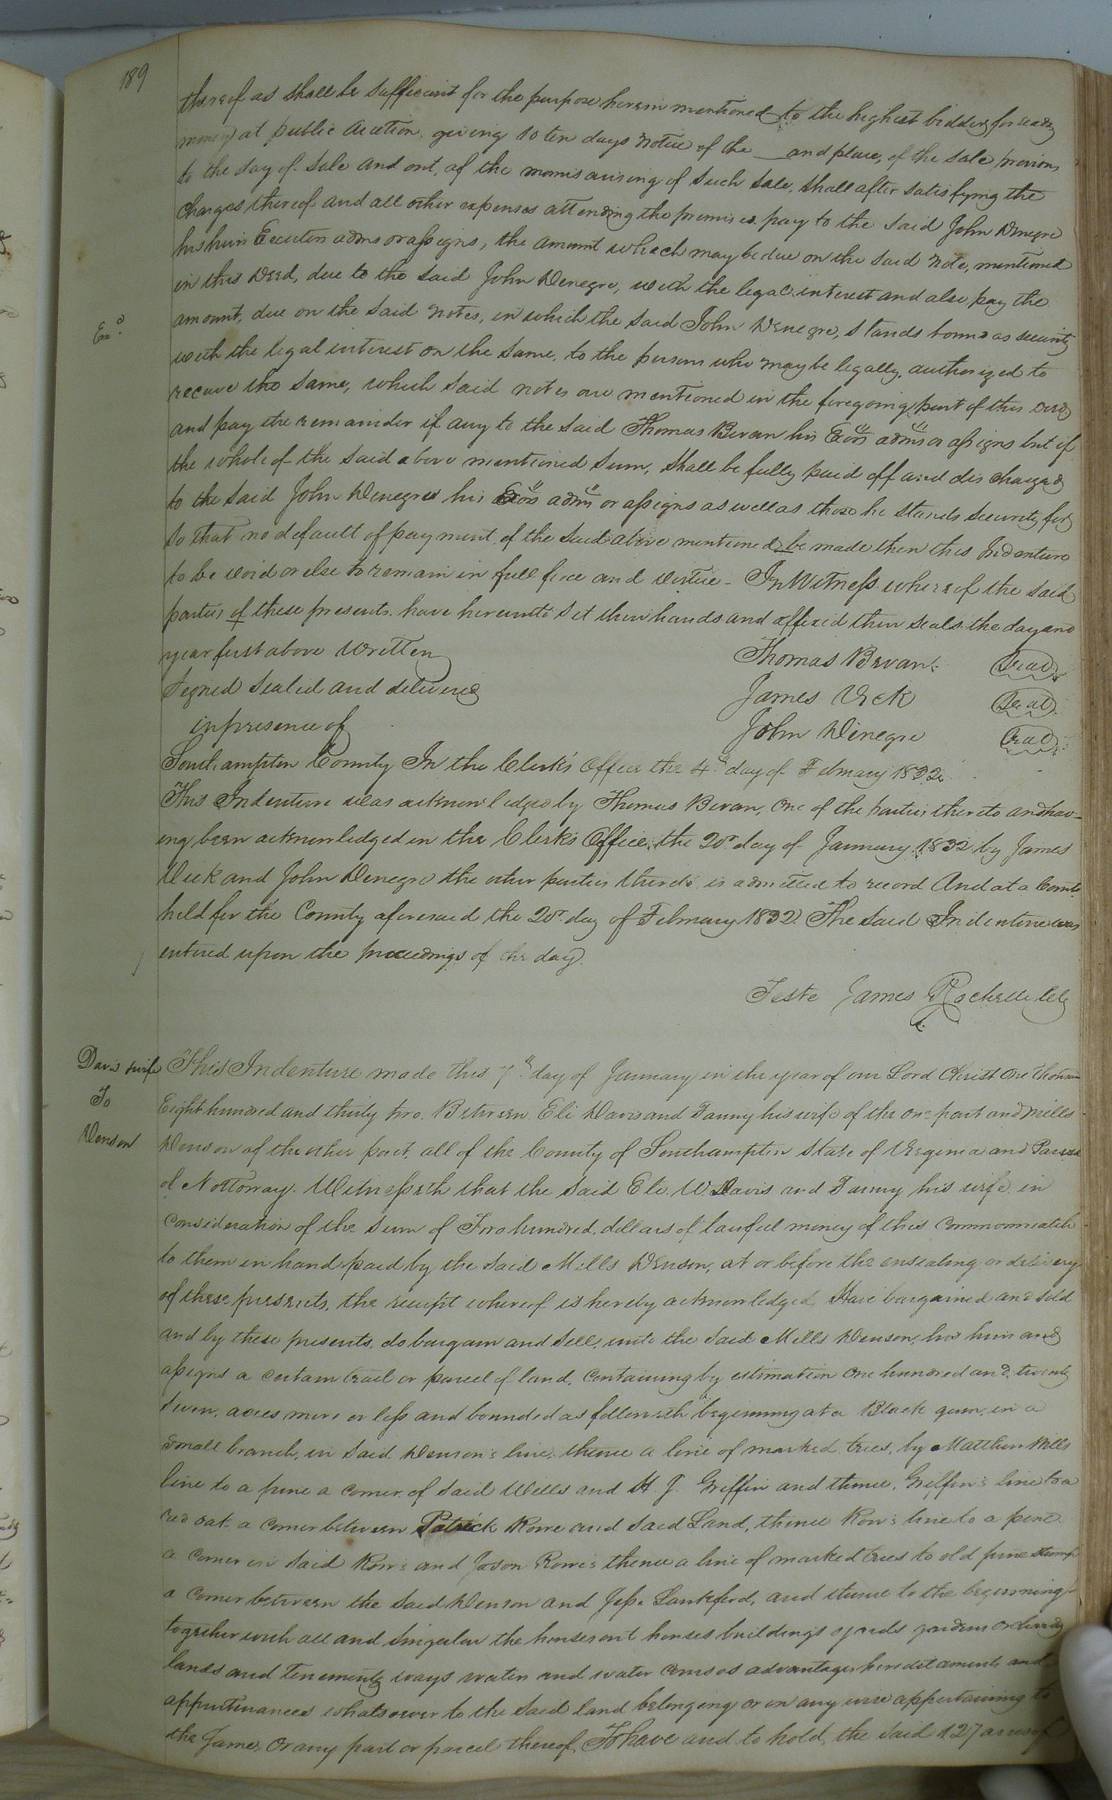 189
thereof as shall be sufficient for the purpose herein mentioned to the highest bidder for ready
money at public auction, giving 10 ten days notice of the __ and place, of the sale previous
to the day of sale and out, of the monies arising of such sale, shall after satisfying the
charges thereof and all other expenses attending the premises pay to the said John Denegre
his heirs Executors adms or assigns, the amount which may be due on the said note, mentioned
in this Deed, due to the said John Denegre, with the legal interest and also pay the
amount, due on the said notes, in which the said John Denegre, stands bound as security
with the legal interest on the same, to the persons who may be legally, authorized to
receive the same, which said notes are mentioned in the foregoing part of this deed
and pay the remainder if any to the said Thomas Bevan his Exors adms or assigns but if
the whole of the said above mentioned sum, shall be fully paid off and discharged
to the said John Denegre his Exors adms or assigns as well as those he stands security for
so that no default of payment, of the said above mentioned be made then this Indenture
to be void or else to remain in full force and virtue - In Witness whereof the said
parties of these presents have hereunto set their hands and affixed their seals the day and
year first above written
Thomas Bevan (Seal)
Signed sealed and delivered
James Vick (Seal)
in presence of
John Denegre (Seal)
Southampton County In the Clerk's Office the 4th day of February 1832
This Indenture was acknowledged by Thomas Bevan, One of the parties thereto and hav-
ing been acknowledged in the Clerk's Office, the 20 day of January 1832 by James
Vick and John Denegre the other parties thereto is admitted to record And at a Court
held for the County aforesaid the 20 day of February 1832 The said Indenture was
entered upon the proceedings of the day
Teste James Rochelle Clk
Davis & wife
To
Denson
This Indenture made this 7th day of January in the year of our Lord Christ One thousand
Eight hundred and thirty two Between Eli Davis and Fanny his wife of the one part and Mills
Denson of the other part, all of the County of Southampton State of Virginia and Parish
of Nottoway. Witnesseth that the said Eli W Davis and Fanny his wife, in
consideration of the sum of Two hundred, dollars of lawful money of this Commonwealth
to them in hand paid by the said Mills Denson, at or before the ensealing or delivery
of these presents, the receipt whereof is hereby acknowledged Have bargained and sold
and by these presents, do bargain and sell, unto the said Mills Denson, his heirs and
assigns a certain tract or parcel of land, containing by estimation One hundred and twenty
seven, acres more or less and bounded as followeth beginning at a Black gum, in a
small branch, in said Denson's line, thence a line of marked trees, by Matthew Wills
line to a pine a corner of said Wills and H J. Griffin and thence, Griffin's line to a
red oak a corner between Patrick Rowe and said Land, thence Row's line to a pine
a corner in said Row's and Jason Rowe's thence a line of marked trees to old pine stump
a corner between the said Denson and Jesse Lankford, and thence to the beginning
together with all and singular the houses out houses buildings yards gardens Orchards
lands and tenements ways waters and water courses advantages hereditaments and
appurtenances whatsoever to the said land belonging or in any wise appertaining to
the same, or any part or parcel thereof, To have and to hold, the said 127 acres of